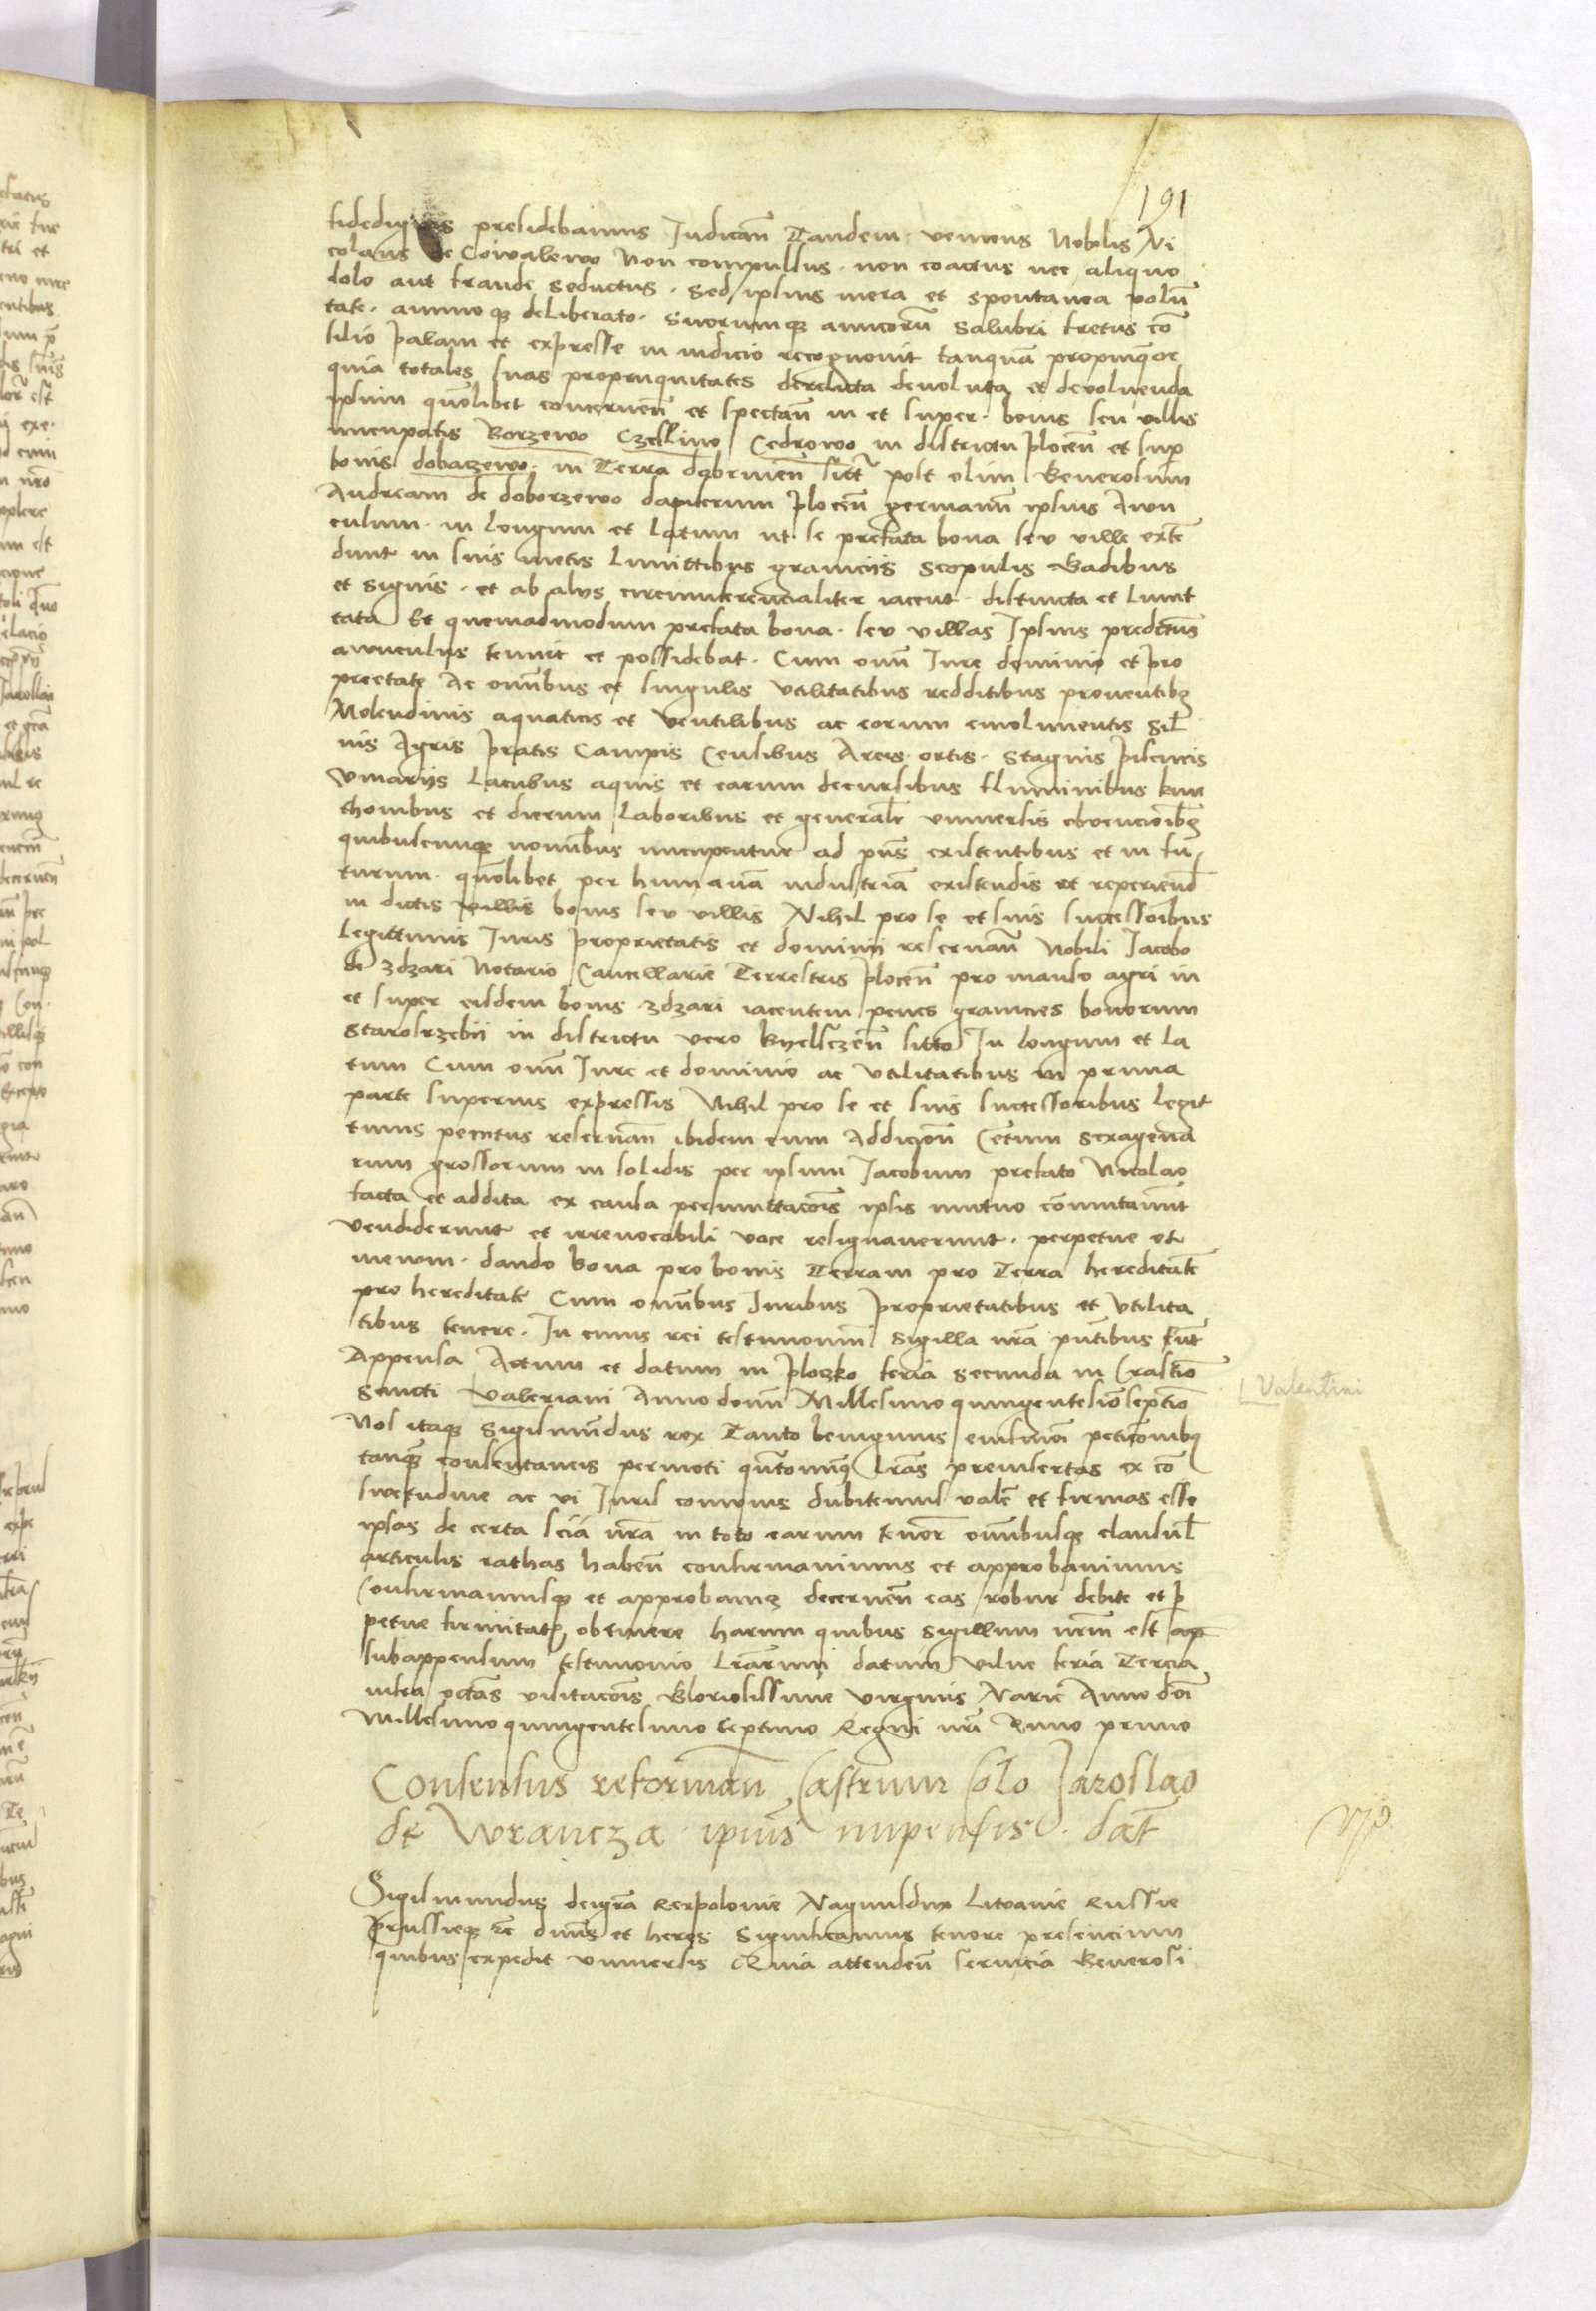 191
fidedignis presidebamus Judican̄ Tandem veniens Nobilis Ni
colaus de Cowalewo Non compulsus . non coactus nec aliquo
dolo aut fraude seductus . Sed ipsius mera et spontanea volūn
tate . animoqꝫ deliberato . Suorumqꝫ amicorū salubri fretus cō
silio palam et expresse in iudicio recognovit tanquā propinquior
quia totales suas propinquitates derelicta devoluta et devoluenda
ipsum quōlibet concernen̄ et spectan̄ in et super . bonis seu villis
nuncupatis Borzewo Czeslino Cedrowo in districtu plocen̄ et sup
bonis dobaczewo . in Terra dobrinen̄ sitt post olim Generosum
Andream de doborzewo dapiferum plocen̄ germanū ipsius Avun
culum . in longum et latum ut se prefata bona seu ville exten
dunt in suis metis Limittibus graniciis scopulis Gadibus
et signis . et ab alys circumferencialiter iacent . distincta et Limit
tata Et quemadmodum prefata bona . seu villas Ipsius predictus
avunculus tenuit et possidebat . Cum omn̄ Iure dominio et pro
prietate Ac omn̄ibus et singulis Utilitatibus redditibus proventibꝫ
Molendinis aquaticis et ventilibus ac eorum emolimentis Sil
vis Agris pratis Campis Censibus Areis . ortis . stagnis piscinis
Vivariys Lacubus aquis et earum decursibus fluminibus kme
thonibus et dierum Laboribus et generalr̄ universis obvencionibꝫ
quibuscunqꝫ nomīnbus nuncupentur ad pn̄s existentibus et in fu
turum . quōlibet per humanā industriā existendis et reperiend̄
in dictis villis bonis seu villis Nihil pro se et suis successoribus
Legittimis Iuris proprietatis et dominii reservan̄ Nobili Jacobo
de zdzari Notario Cancellarie Terrestris plocen̄ pro manso agri in
et super eisdem bonis . zdzari iacentem penes granicies bonorum
Starosrzebii in districtu vero byelsczen̄ sitto In longum et La
tum Cum omn̄ Iure et dominio ac Utilitatibus in prima
parte superius expressis Nihil pro se et suis successoribus Legit
timis penitus reservan̄ ibidem cum Addicion̄ Centum sexagena
rum grossorum in solidis per ipsum Jacobum prefato Nicolao
facta et addita ex causa permuttacōis ipsis mutuo cōmutavīt
vendiderunt et irrevocabili voce resignaverunt . perpetue et
in evum . dando bona pro bonis Terram pro Terra hereditatē
pro hereditate Cum omn̄ibus Iuribus proprietatibus et Utilita
tibus tenere . In cuius rei testimoniū Sigilla nr̄a pn̄tibus sūnt
Appensa Actum et datum in ploczko feria secunda in Crastīo
Sancti Valeriani Anno domī Millesimo quingentesīo septīo
Valentini
Nos itaqꝫ Sigismūndus rex Tanto benignius eiusmōi peticōnibꝫ
tanqꝫ consentaneis permoti qn̄tominꝫ Lr̄as preinsertas ex cō
suetudine ac vi Iuris comunis dubitemus valē et firmas esse
ipsas de certa sciā nr̄a in toto earum tenor̄ omn̄ibusqꝫ clausul̄
articulis rathas haben̄ confirmavimus et approbavimus
Confirmamusqꝫ et approbamꝫ decernen̄ eas robur debite et p
petue firmitatis obtinere harum quibus Sigillum nr̄m est ap
subappensum testimonio Lr̄arum datum Vilne feria Tercia
infra octās visitacōis Gloriosissime virginis Marie Anno dōi
Millesimo quingentesimo septimo Regni nr̄i Anno primo
Consensus reforman̄ Castrum solo Jaroslao
de Wrancza ipius impensis . dat̄
Sigismundus dei gr̄a Rex polonie Magnus dux Litvanie Russie
prussieqꝫ ꝛc dn̄us et heres Significamus tenore presencium
quibus expedit universis Quia attenden̄ servicia Generosi